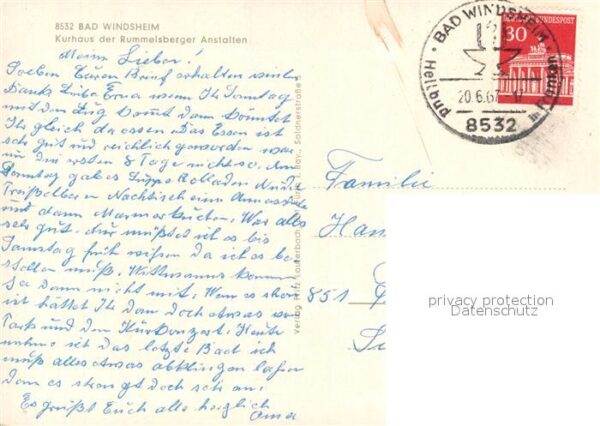 8532 BAD WINDSHEIM
Kurhaus der Rummelsberger Anstalten
Meine Lieben!
Soeben Euren Brief erhalten vielen
Dank. Liebe Erna wenn Ihr Sonntag
mit dem Zug kommt dann könntet
Ihr gleich da essen. Das Essen ist
sehr gut und reichlich geworden war
nur die ersten 8 Tage nicht so. Am
Sonntag gab es Suppe Rolladen Nudel
Preißelbeeren Nachtisch eine
und dann Marmorkuchen. War alles
sehr gut. Nur müßtet ich es bis
Samstag früh wissen da ich es be-
stellen muß. Wittmanns kommen
ja dann nicht mit. Wenn es schön
ist hättet Ihr dann doch etwas vom
Park und dem Kurkonzert. Heute
nehme ich das letzte Bad ich
muß alles etwas abklingen laßen
denn es strengt doch sehr an.
Es grüßt Euch alle herzlich
Oma
Verlag Fritz Lauterbach, Fürth i. Bay., Soldnerstraße
BAD WINDSHEIM
Heilbad
20.6.67
8532
DEUTSCHE BUNDESPOST
30
Familie
851
privacy protection
Datenschutz